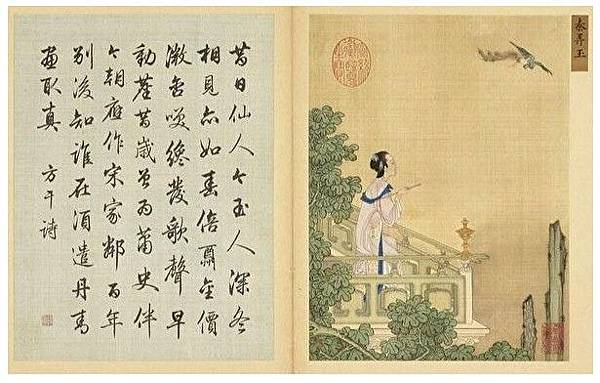 昔日仙人今玉人深冬
相見亦如春倍酬金價
微含笑纔發歌聲早
動塵昔歲曾為蕭史伴
今朝應作宋家鄰百年
別後知誰在須遣丹青
畫取真 方干詩
秦弄玉